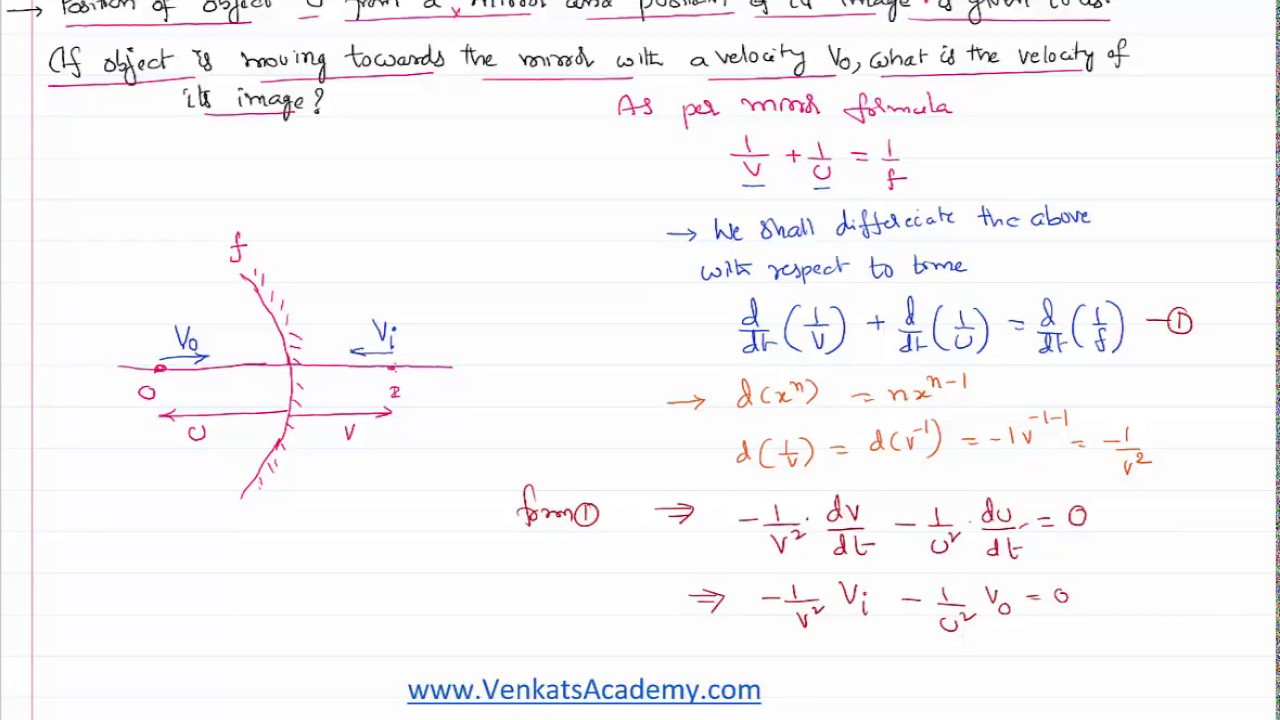 → Position of object U from a mirror and position of its image is given to us.
(If object is moving towards the mirror with a velocity V₀, what is the velocity of
its image?
As per mirror formula
1/V + 1/U = 1/f
→ We shall differeciate the above
with respect to time
d/dt (1/V) + d/dt (1/U) = d/dt (1/f) —①
→ d(xⁿ) = nxⁿ⁻¹
d(1/v) = d(v⁻¹) = -1v⁻¹⁻¹ = -1/v²
f
V₀
Vi
O
I
U
V
form① ⇒ -1/v² · dv/dt - 1/u² · du/dt = 0
⇒ -1/v² Vi - 1/u² V₀ = 0
www.VenkatsAcademy.com